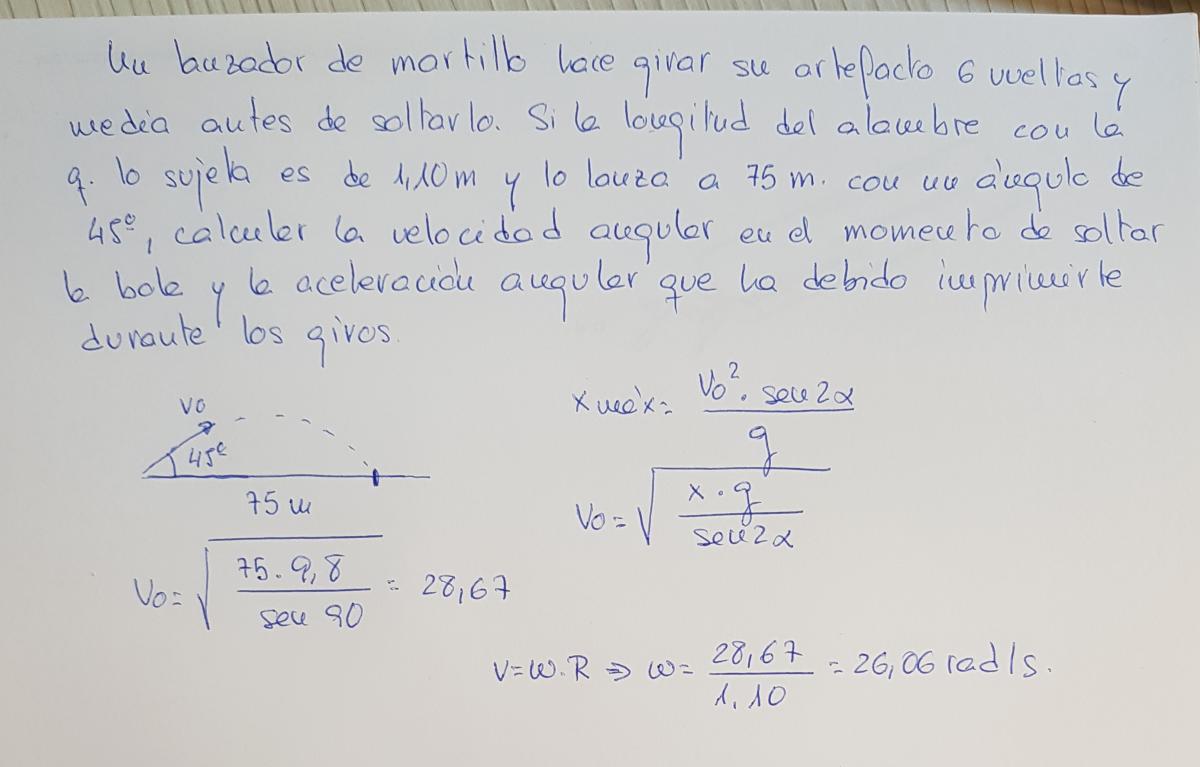 Un lanzador de martillo hace girar su artefacto 6 vueltas y
media antes de soltarlo. Si la longitud del alambre con la
q. lo sujeta es de 1,10 m y lo lanza a 75 m. con un ángulo de
45º, calcular la velocidad angular en el momento de soltar
la bola y la aceleración angular que ha debido imprimirle
durante los giros.
V0
45º
75 m
x máx = V0². sen 2α / g
V0 = √(x · g / sen 2α)
V0 = √(75 · 9,8 / sen 90) = 28,67
V = w · R ⇒ w = 28,67 / 1,10 = 26,06 rad/s.